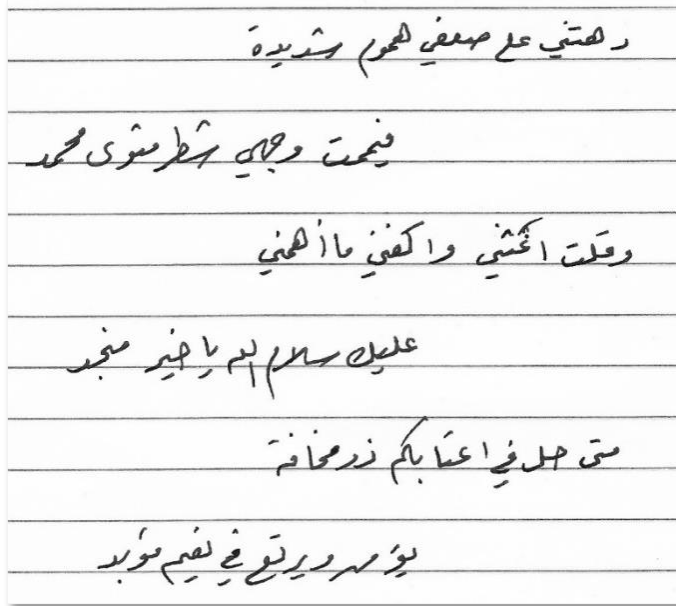 دهتني على ضعفي هموم شديدة
فيممت وجهي شطر مثوى محمد
وقلت اغثني واكفني ما أهمني
عليك سلام الله يا خير منجد
متى حل في اعتابكم ذو مخافة
يؤمن ويرتع في نعيم مؤبد